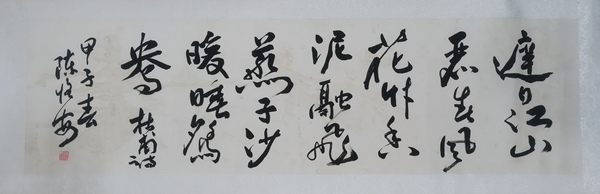 遲日江山
麗春風
花草香
泥融飛
燕子沙
暖睡鴛
鴦 杜甫詩
甲子春
陈恒安